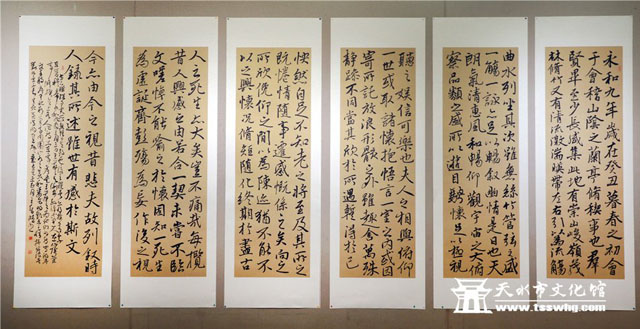 永和九年歲在癸丑暮春之初會
于會稽山陰之蘭亭脩稧事也群
賢畢至少長咸集此地有崇山峻嶺茂
林脩竹又有清流激湍暎帶左右引以為流觴
曲水列坐其次雖無絲竹管弦之盛
一觴一詠亦足以暢敘幽情是日也天
朗氣清惠風和暢仰觀宇宙之大俯
察品類之盛所以遊目騁懷足以極視
聽之娛信可樂也夫人之相與俯仰
一世或取諸懷抱悟言一室之內或因
寄所託放浪形骸之外雖趣舍萬殊
靜躁不同當其欣於所遇輒得於己
快然自足不知老之將至及其所之
既惓情隨事遷感慨係之矣向之
所欣俛仰之間以為陳迹猶不能不
以之興懷況脩短隨化終期於盡古
人云死生亦大矣豈不痛哉每攬
昔人興感之由若合一契未嘗不臨
文嗟悼不能喻之於懷固知一死生
為虛誕齊彭殤為妄作後之視
今亦由今之視昔悲夫故列敘時
人錄其所述雖世有感於斯文
天水市文化馆
www.tsswhg.com